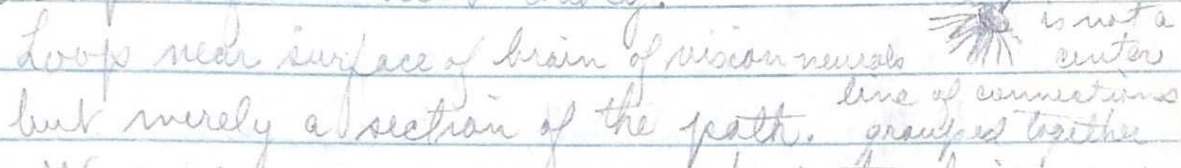 Loop near surface of brain of vision neurals is not a center
but merely a section of the path. line of connections grouped together